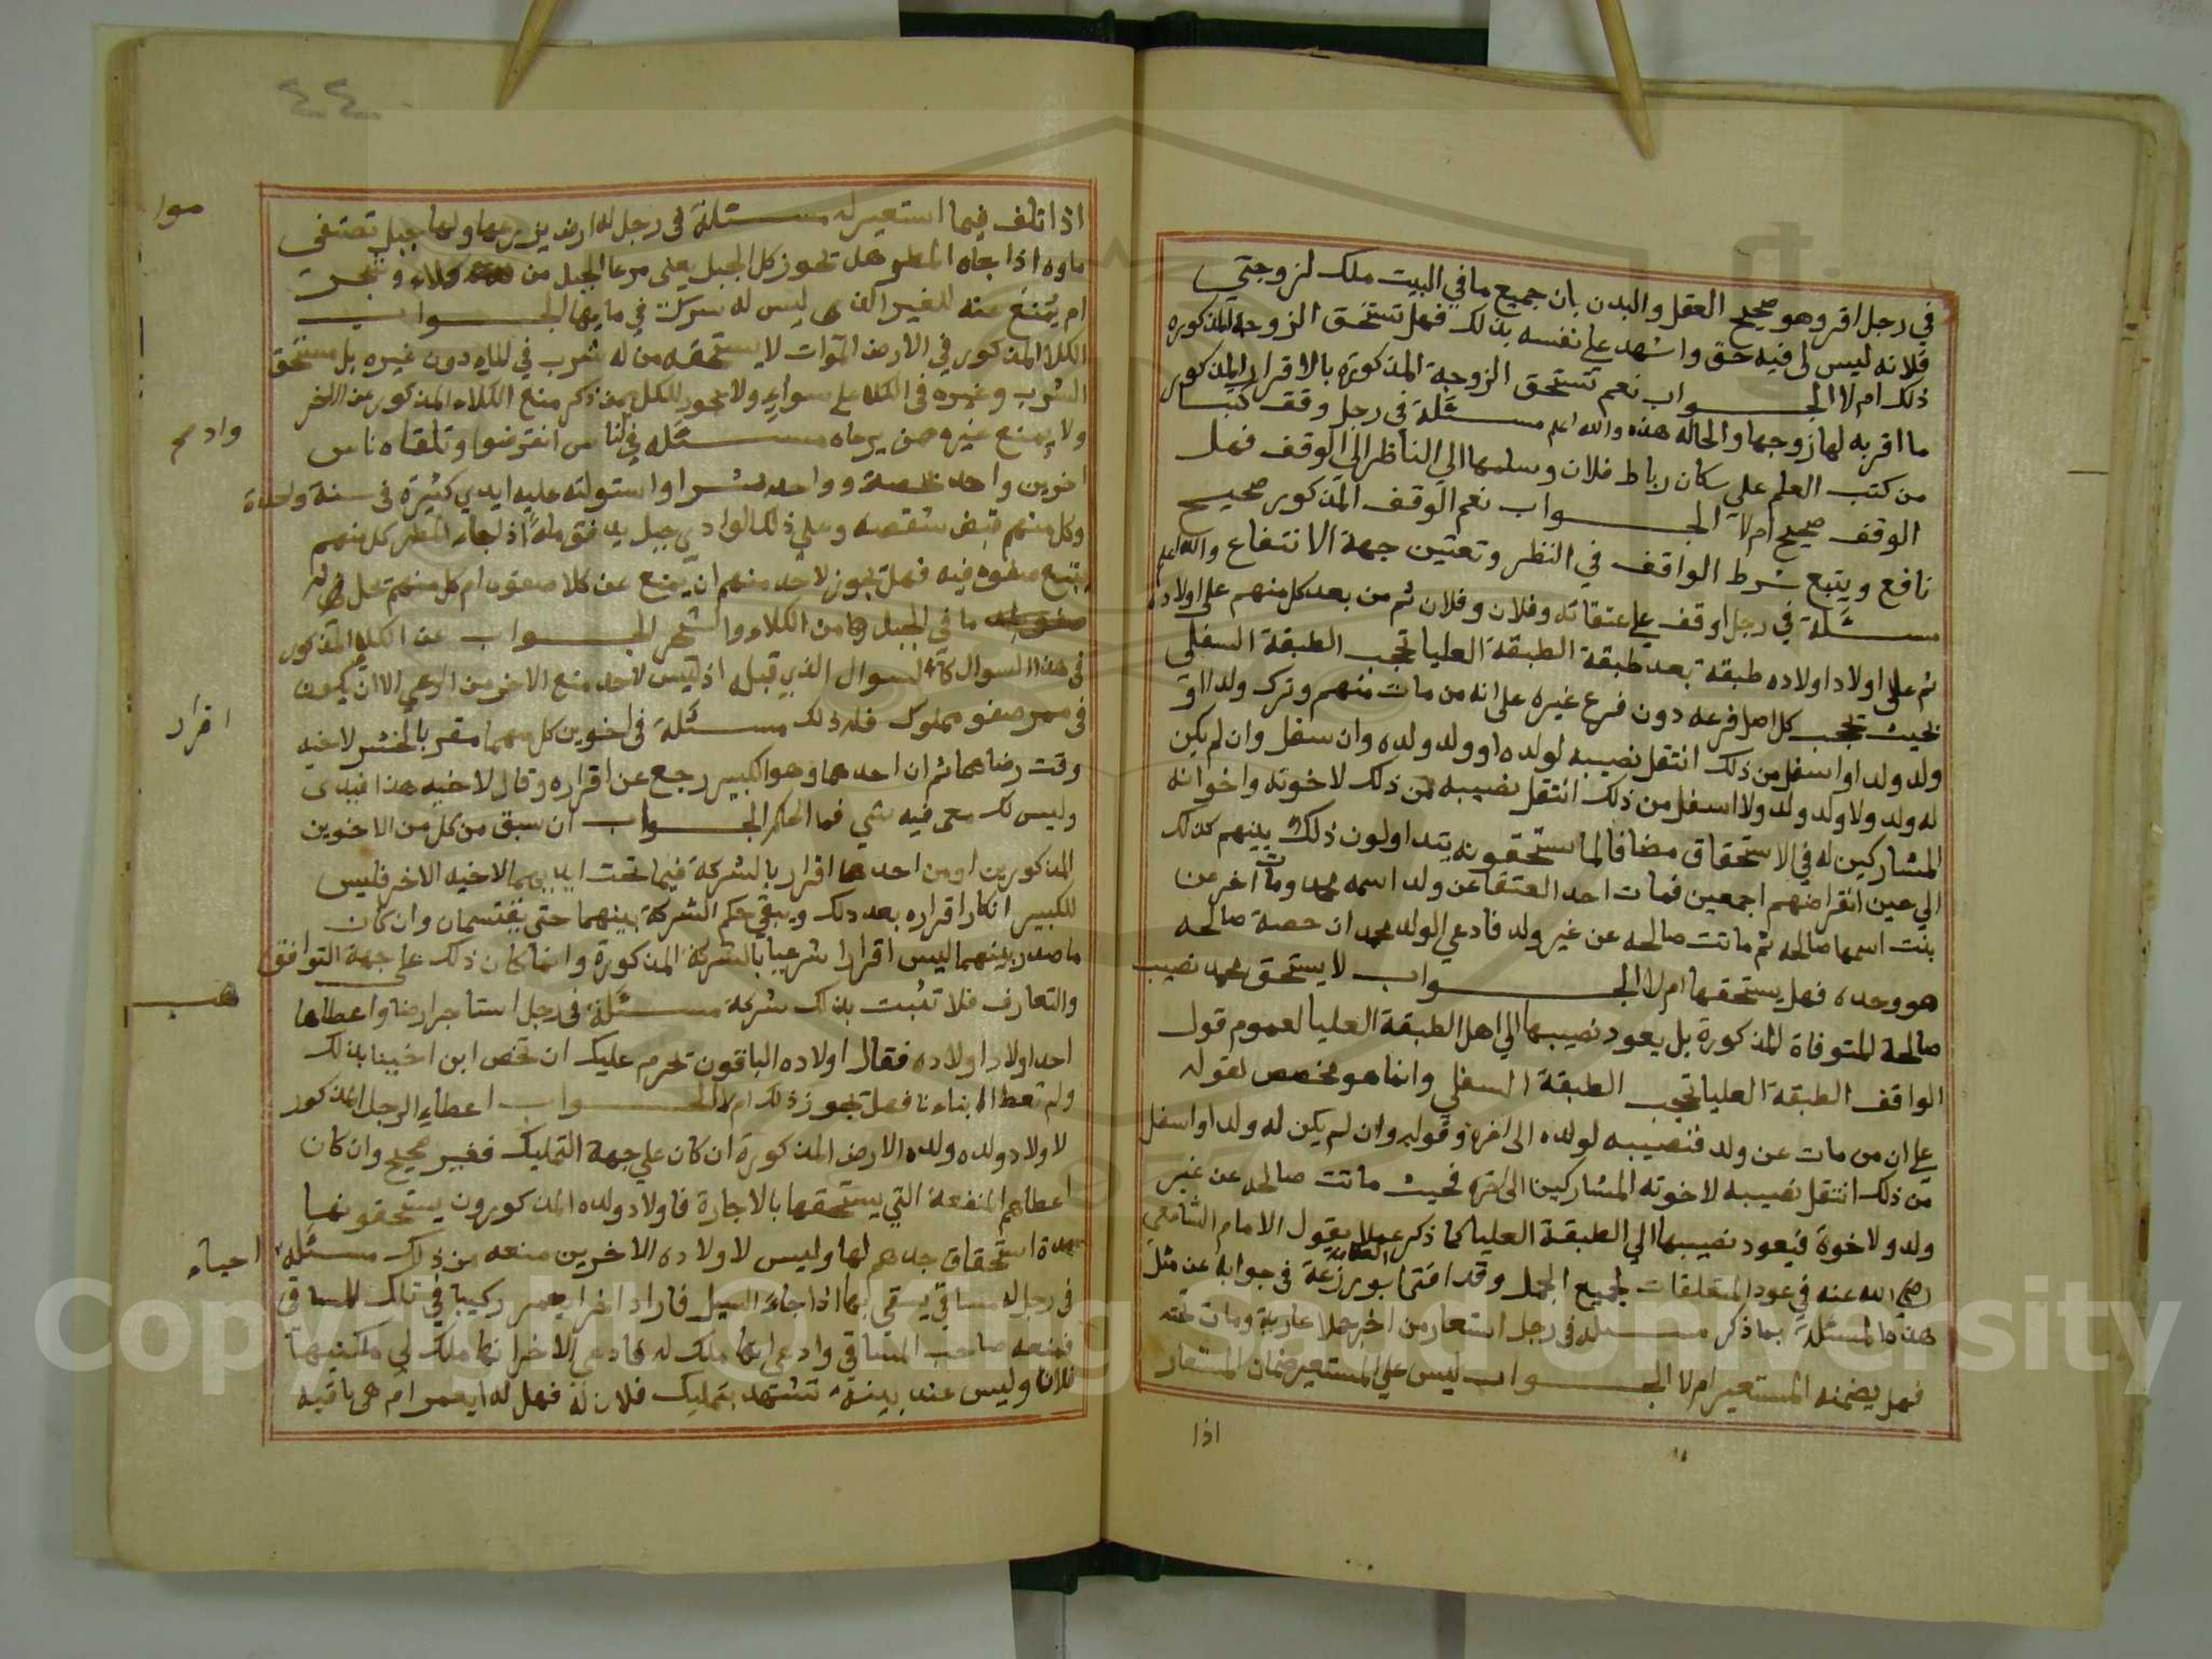 في رجل اقر وهو صحيح العقل والبدن بان جميع ما في البيت ملك لزوجتي
فلانه ليس لي فيه حق واشهد على نفسه بذلك فهل تستحق الزوجة المذكوره
ذلك ام لا الجواب نعم تستحق الزوجة المذكورة بالاقرار المذكور
ما اقر به لها زوجها والحاله هذه والله اعلم مسئلة في رجل وقف كتبا
من كتب العلم على سكان رباط فلان وسلمها الي الناظر الي الوقف فهل
الوقف صحيح ام لا الجواب نعم الوقف المذكور صحيح
نافع ويتبع شرط الواقف في النظر وتعيين جهة الانتفاع والله اعلم
مسئلة في رجل اوقف على عتقائه وفلان وفلان ثم من بعد كل منهم على اولاده
ثم على اولاد اولاده طبقة بعد طبقة الطبقة العليا تحجب الطبقة السفلي
بحيث تحجب كل اصل فرعه دون فرع غيره على انه من مات منهم وترك ولدا او
ولد ولد او اسفل من ذلك انتقل نصيبه لولده او ولد ولده وان سفل وان لم يكن
له ولد ولا ولد ولد ولا اسفل من ذلك انتقل نصيبه من ذلك لاخوته واخوانه
المشاركين له في الاستحقاق مضافا لما يستحقونه يتداولون ذلك بينهم كذلك
الي حين انقراضهم اجمعين فمات احد العتقا عن ولد اسمه محمد ومات اخر عن
بنت اسمها صالحه ثم ماتت صالحه عن غير ولد فادعي الولد محمد ان حصة صالحه
هو وحده فهل يستحقها ام لا الجواب لا يستحق محمد نصيب
صالحة المتوفاة المذكورة بل يعود نصيبها الي اهل الطبقة العليا لعموم قول
الواقف الطبقة العليا تحجب الطبقة السفلي وانما هو مخصص لقوله
على ان من مات عن ولد فنصيبه لولده الى اخره وقوله وان لم يكن له ولد او اسفل
من ذلك انتقل نصيبه لاخوته المشاركين الى اخره فحيث ماتت صالحه عن غير
ولد ولا خوة فيعود نصيبها الي الطبقة العليا كما ذكر عملا بقول الامام الشافعي
رضي الله عنه في عود المتعلقات لجميع الجمل وقد افتى العلامة ابو زرعة في جوابه عن مثل
هذه المسئلة بما ذكر مسئله في رجل استعار من اخر جملا عارية ومات تحته
فهل يضمنه المستعير ام لا الجواب ليس على المستعير ضمان المستعار
اذا
٤٤
اذا تلف فيما استعير له مسئلة في رجل له ارض يزرعها ولها جبل تصتفى
ماوه اذا جاه المطر هل تحوز كل الجبل يعني مرعا الجبل من كلاء وشجر
ام يمنع منه للغير الذي ليس له شركة في مايها الجواب
الكلا المذكور في الارض الموات لا يستحقه من له شرب في الماء دون غيره بل مستحق
الشرب وغيره في الكلا على سواء ولا يجوز لكل من ذكر منع الكلاء المذكور عن الاخر
ولا يمنع غيره من يرعاه مسئله في اناس انقرضوا وتلقاه ناس
اخرين واحد وواحد بشرا واستولته عليه ايدي كثيرة في سنة واحدة
وكل منهم قبض شقصه وعلى ذلك الوادي جبل يدفق ماه اذا جاء المطر كل منهم
يتبع صفوه فيه فهل يجوز لاحد منهم ان يمنع عن كلا صفوه ام كل منهم
ما في الجبل من الكلاء والشجر الجواب عن الكلا المذكور
في هذا السوال كالسوال الذي قبله اذ ليس لاحد منع الاخر من الرعي الا ان يكون
في ممر صفو مملوك فله ذلك مسئلة في اخوين كل منهما مقر بالخنشر لاخيه
وقت رضاهما ثم ان احدهما وهو الكبير رجع عن اقراره وقال لاخيه هذا بيدي
وليس لك معي فيه شي فما الحكم الجواب ان سبق من كل من الاخوين
المذكورين او من احدهما اقرار بالشركة فيما تحت ايديهما لاخيه الاخر فليس
للكبير انكار اقراره بعد ذلك ويبقى حكم الشركة بينهما حتى يقتسمان وان كان
ما صدر بينهما ليس اقرارا شرعيا بالشركة المذكورة وانما كان ذلك على جهة التوافق
والتعارف فلا تثبت بذلك شركة مسئلة في رجل استاجر ارضا واعطاها
احد اولاد اولاده فقال اولاده الباقون تحرم عليك ان تخص ابن اخينا بذلك
ولم تعط ابناءنا فهل تجوز ذلك ام لا الجواب اعطاء الرجل المذكور
لاولاد ولده ولده الارض المذكورة ان كان على جهة التمليك فغير صحيح وان كان
اعطاهم المنفعة التي يستحقها بالاجارة فاولاد ولده المذكورون يستحقونها
مدة استحقاق جدهم لها وليس لاولاده الاخرين منعه من ذلك مسئله
في رجل له مساقي يسقي بها اذا جاء السيل فاراد اخر يعمر ركيبا في تلك المساقي
فمنعه صاحب المساقي وادعي انها ملك له فادعي الاخر انها ملك لي ملكنيها
فلان وليس عنده بينة تشهد بتمليك فلان له فهل له ان يعمر ام هي باقيه
موا
وادي
اقرار
هب
احياء
Copyright © King Saud University